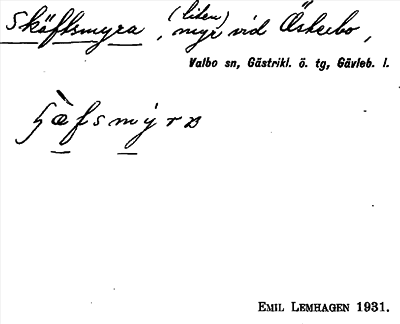 Sköftsmyra, (liten) myr vid Österbo,
Valbo sn, Gästrikl. ö. tg, Gävleb. l.
EMIL LEMHAGEN 1931.